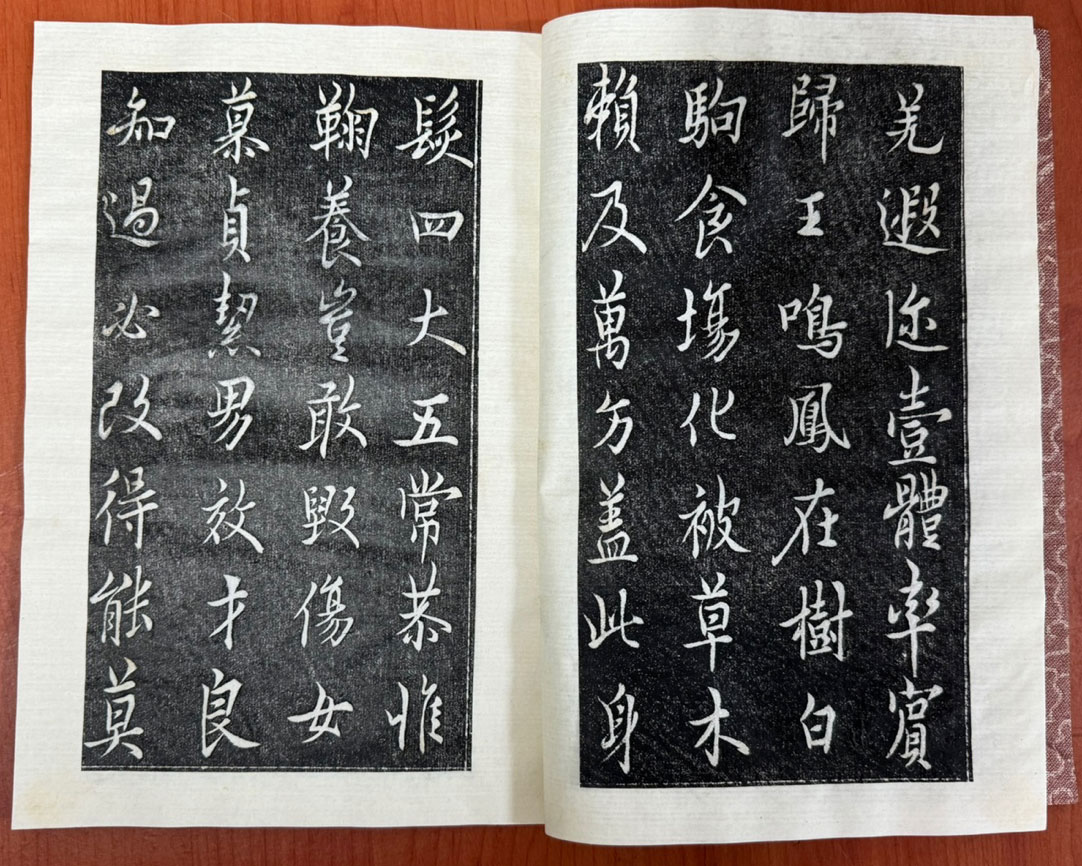 羌遐迩壹體率賓
歸王鳴鳳在樹白
駒食場化被草木
賴及萬方盖此身
髮四大五常恭惟
鞠養豈敢毀傷女
慕貞絜男效才良
知過必改得能莫